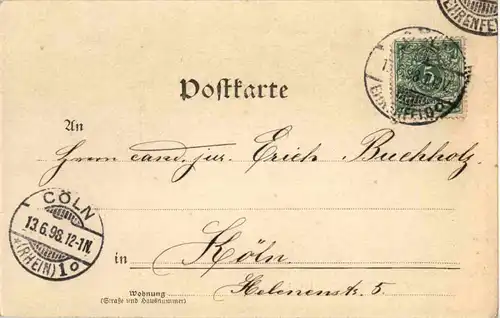 EHRENFELD
5
Postkarte
An
Herrn cand. jur. Erich Buchholz.
CÖLN
13.6.98.12-1N.
*(RHEIN) 1 o
in Köln.
Helenenstr. 5.
Wohnung
(Straße und Hausnummer)